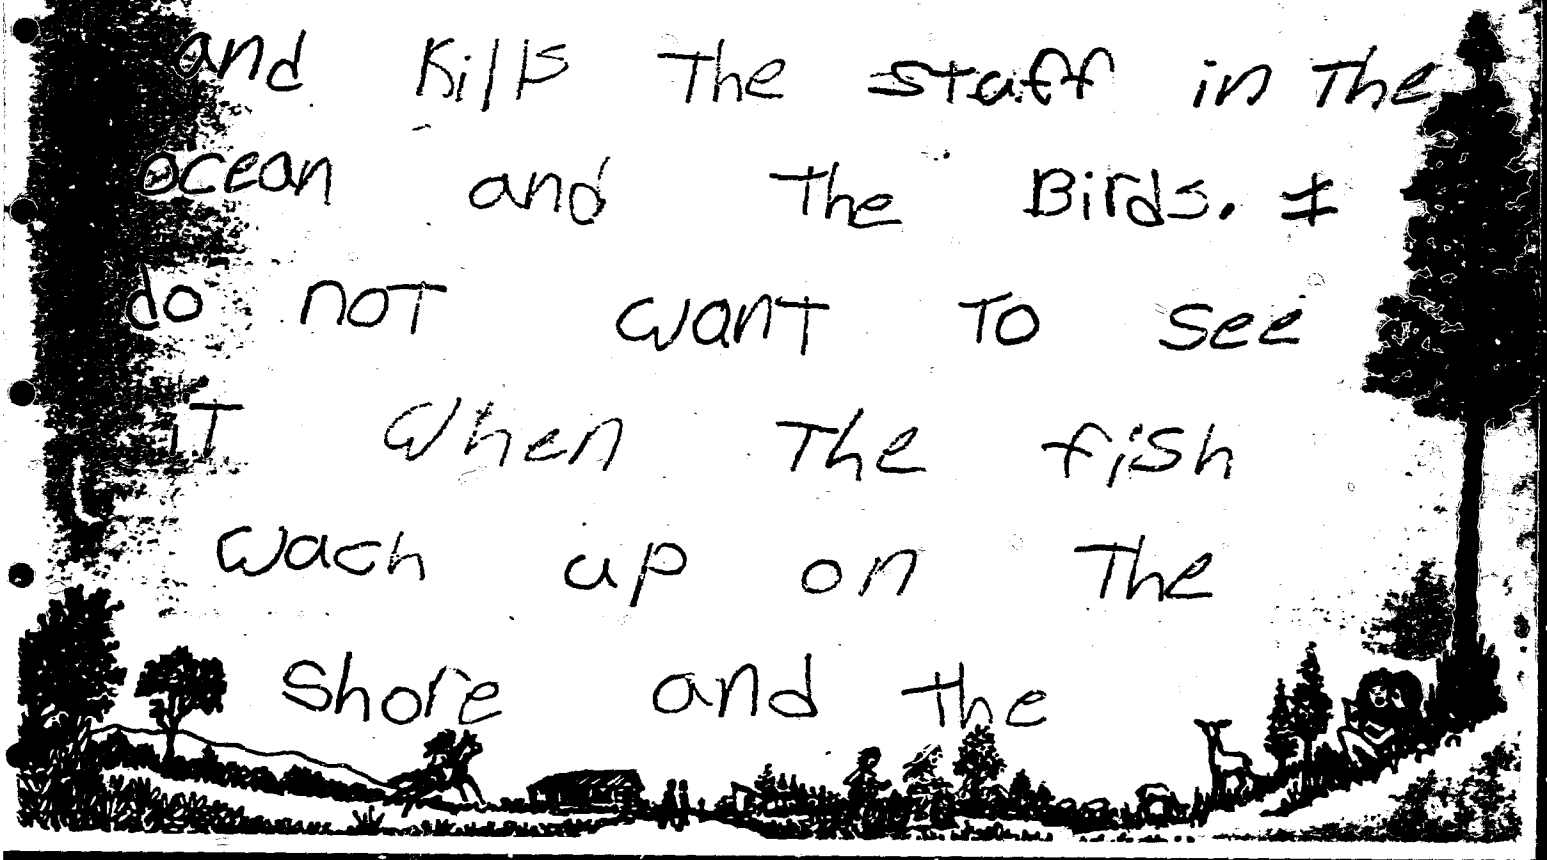 and kills The staff in The
ocean and The Birds. I
do not want To see
iT when The fish
wach up on The
shore and the